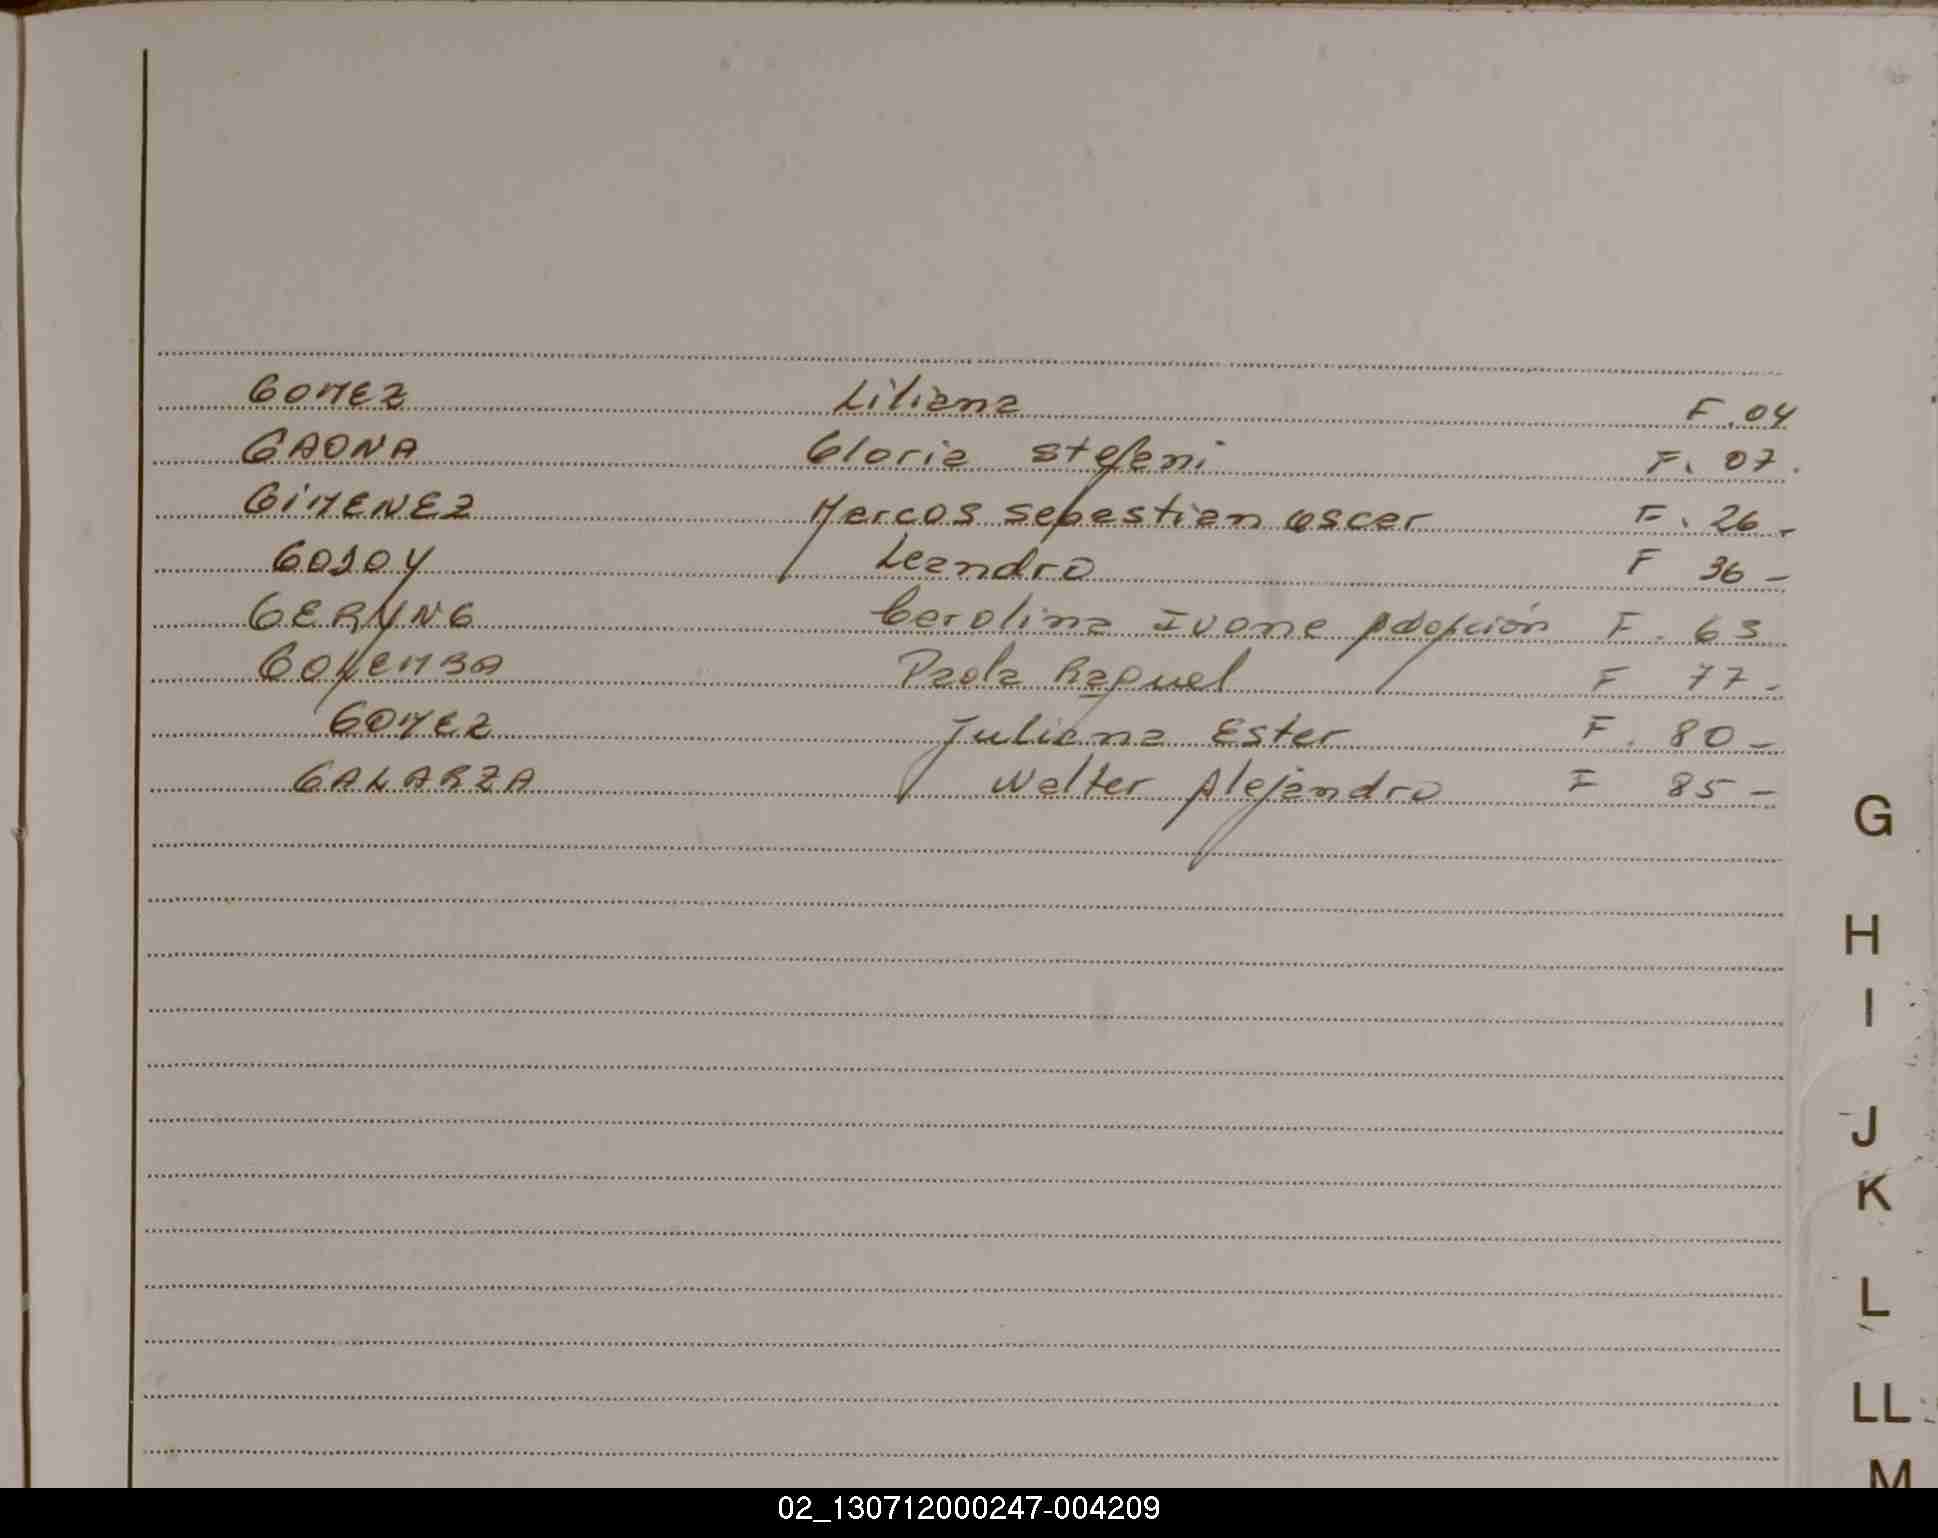 GOMEZ Liliana F. 04
GAONA Gloria Stefani F. 07.
GiMENEZ Marcos Sebastian Oscar F. 26-
GODOY Leandro F 36-
GERYNG Carolina Ivone Adopción F. 63
GOLEMBA Paola Raquel F 77-
GOMEZ Juliana Ester F. 80-
GALARZA Walter Alejandro F 85-
G
H
I
J
K
L
LL
M
02_130712000247-004209